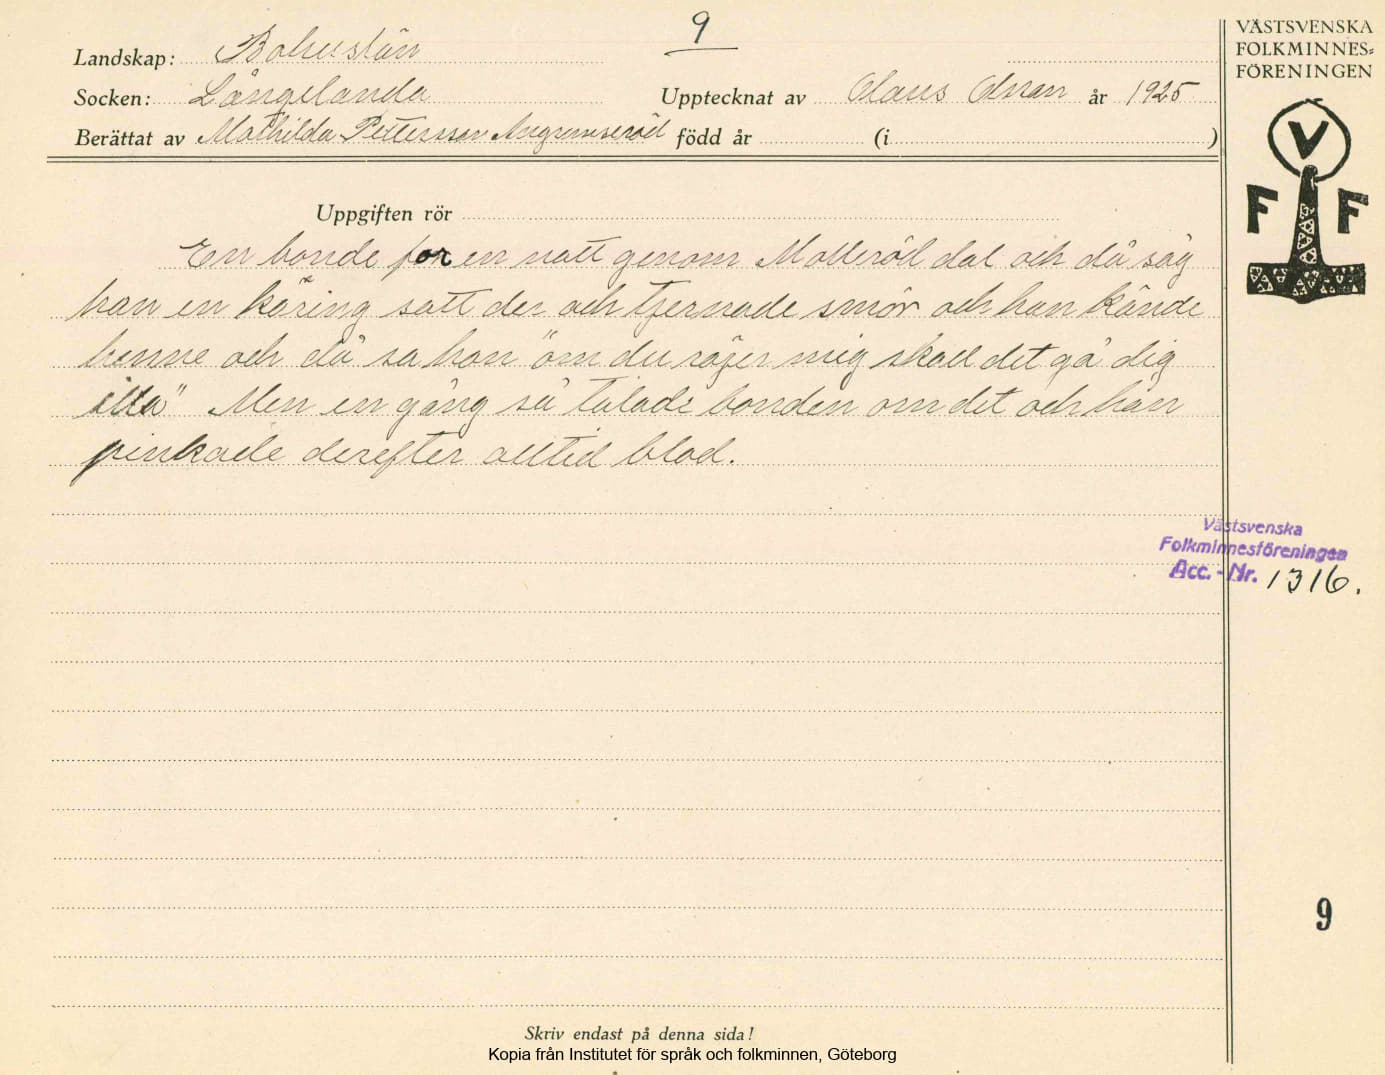 9
VÄSTSVENSKA
FOLKMINNES=
FÖRENINGEN
V
F F
Landskap: Bohuslän
Socken: Långelanda
Upptecknat av Olaus Olsson år 1925
Berättat av Mathilda Pettersson Angrimseröd född år (i )
Uppgiften rör
En bonde for en natt genom Molleröd dal och då såg
han en käring satt der och tjernade smör och han kände
henne och då sa hon "om du röjer mig skall det gå dig
illa" Men en gång så talade bonden om det och han
pinkade derefter alltid blod.
Västsvenska
Folkminnesföreningen
Acc.-Nr. 1316.
9
Skriv endast på denna sida!
Kopia från Institutet för språk och folkminnen, Göteborg